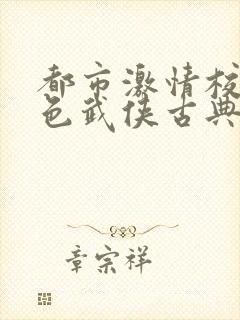 都市激情校
色武侠古典
章宗祥